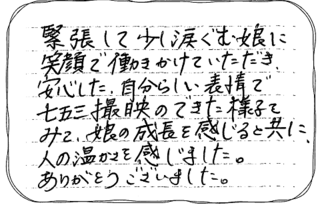 緊張して少し涙ぐむ娘に
笑顔で働きかけていただき、
安心した、自分らしい表情で
七五三撮映のできた様子を
みて、娘の成長を感じると共に、
人の温かさを感じました。
ありがとうございました。